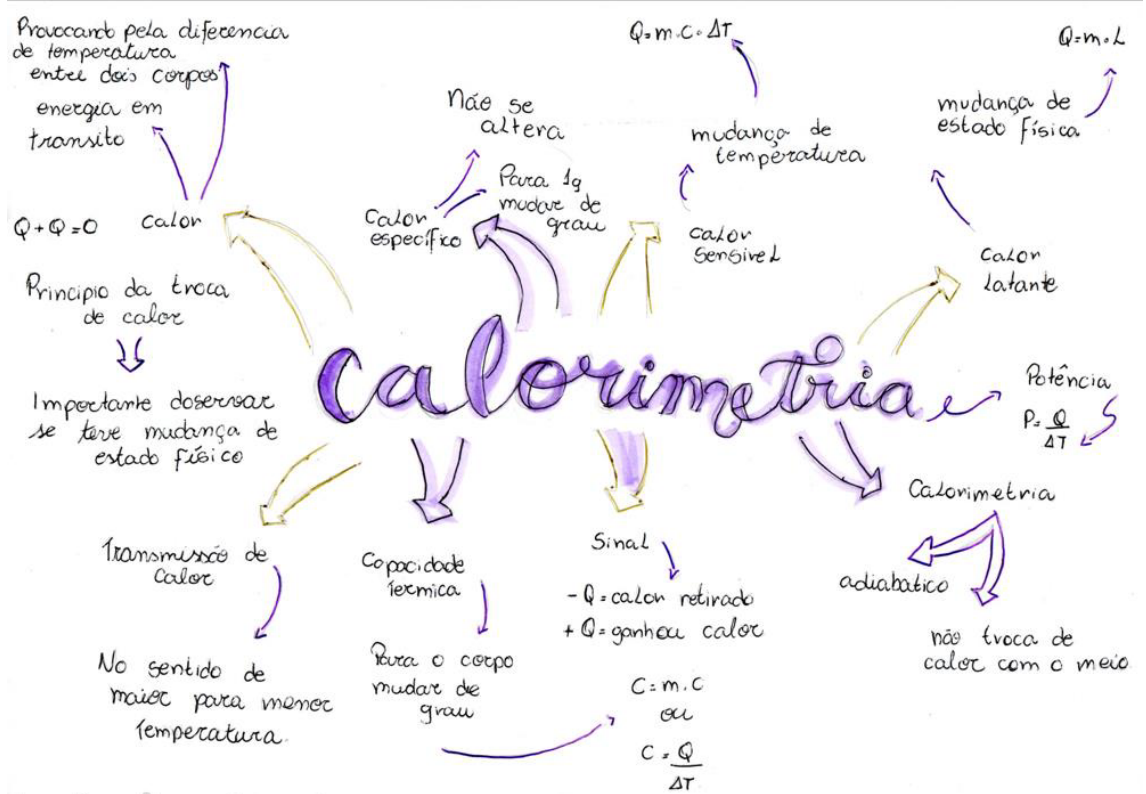 Provocando pela diferencia
de temperatura
entre dois corpos
energia em
transito
calor
Q + Q = 0
Principio da troca
de calor
Importante doservar
se teve mudança de
estado físico
Não se
altera
Para 1g
mudar de
grau
Calor
específico
Q = m . C . ΔT
mudança de
temperatura
calor
sensivel
Q = m . L
mudança de
estado física
Calor
Latante
Calorimetria
Potência
P = Q
ΔT
Calorimetria
adiabatico
não troca de
calor com o meio
Transmissão de
Calor
No sentido de
maior para menor
Temperatura.
Capacidade
Térmica
Para o corpo
mudar de
grau
C = m . C
ou
C = Q
ΔT
Sinal
- Q = calor retirado
+ Q = ganhou calor